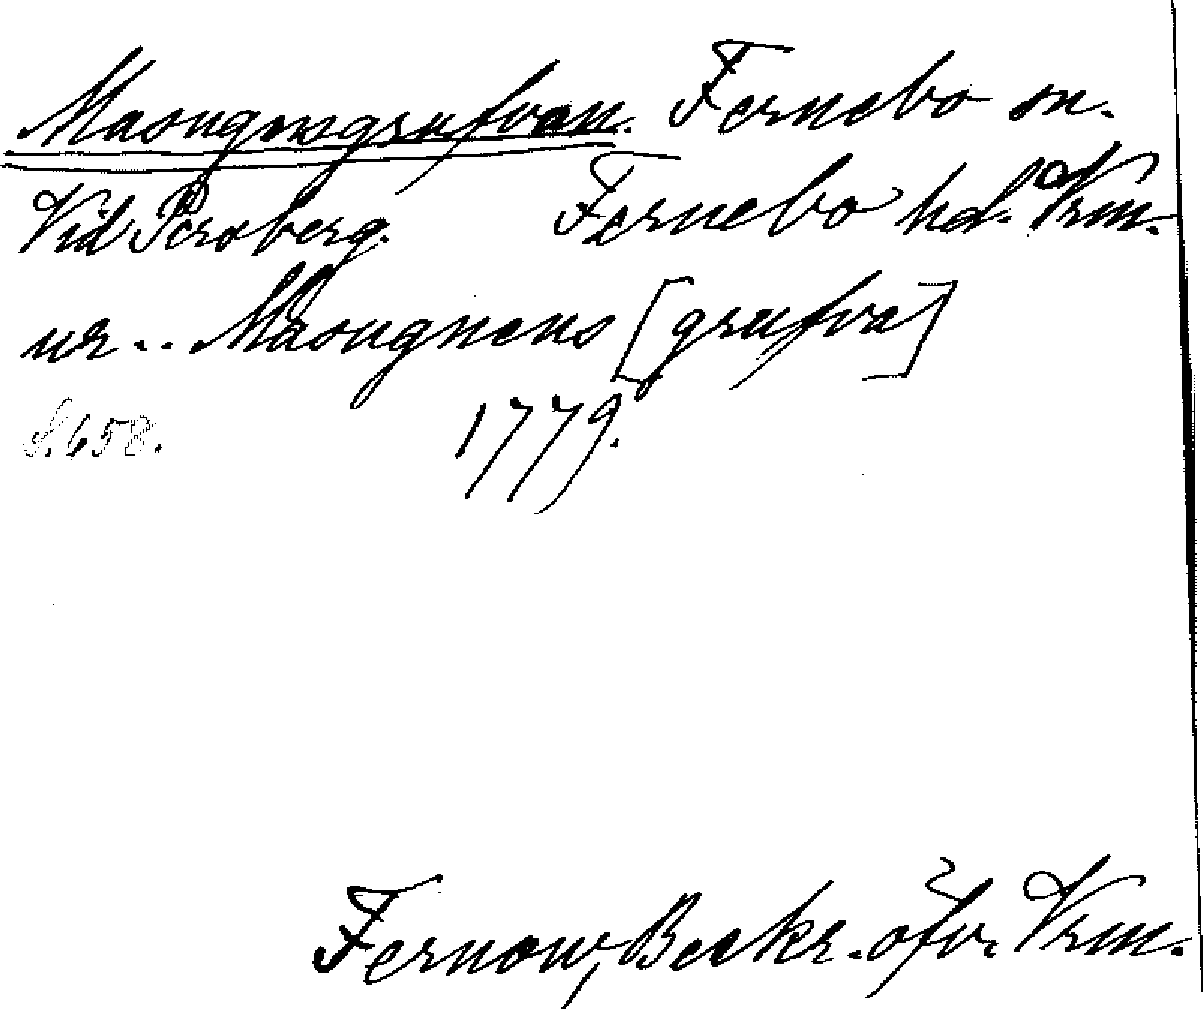 Masugnsgrufvan. Fernebo sn.
Vid Persberg. Fernebo hd. Vrm.
ur .. Masugnens [grufva]
S. 658. 1779.
Fernow, Beskr. öfv. Vrm.